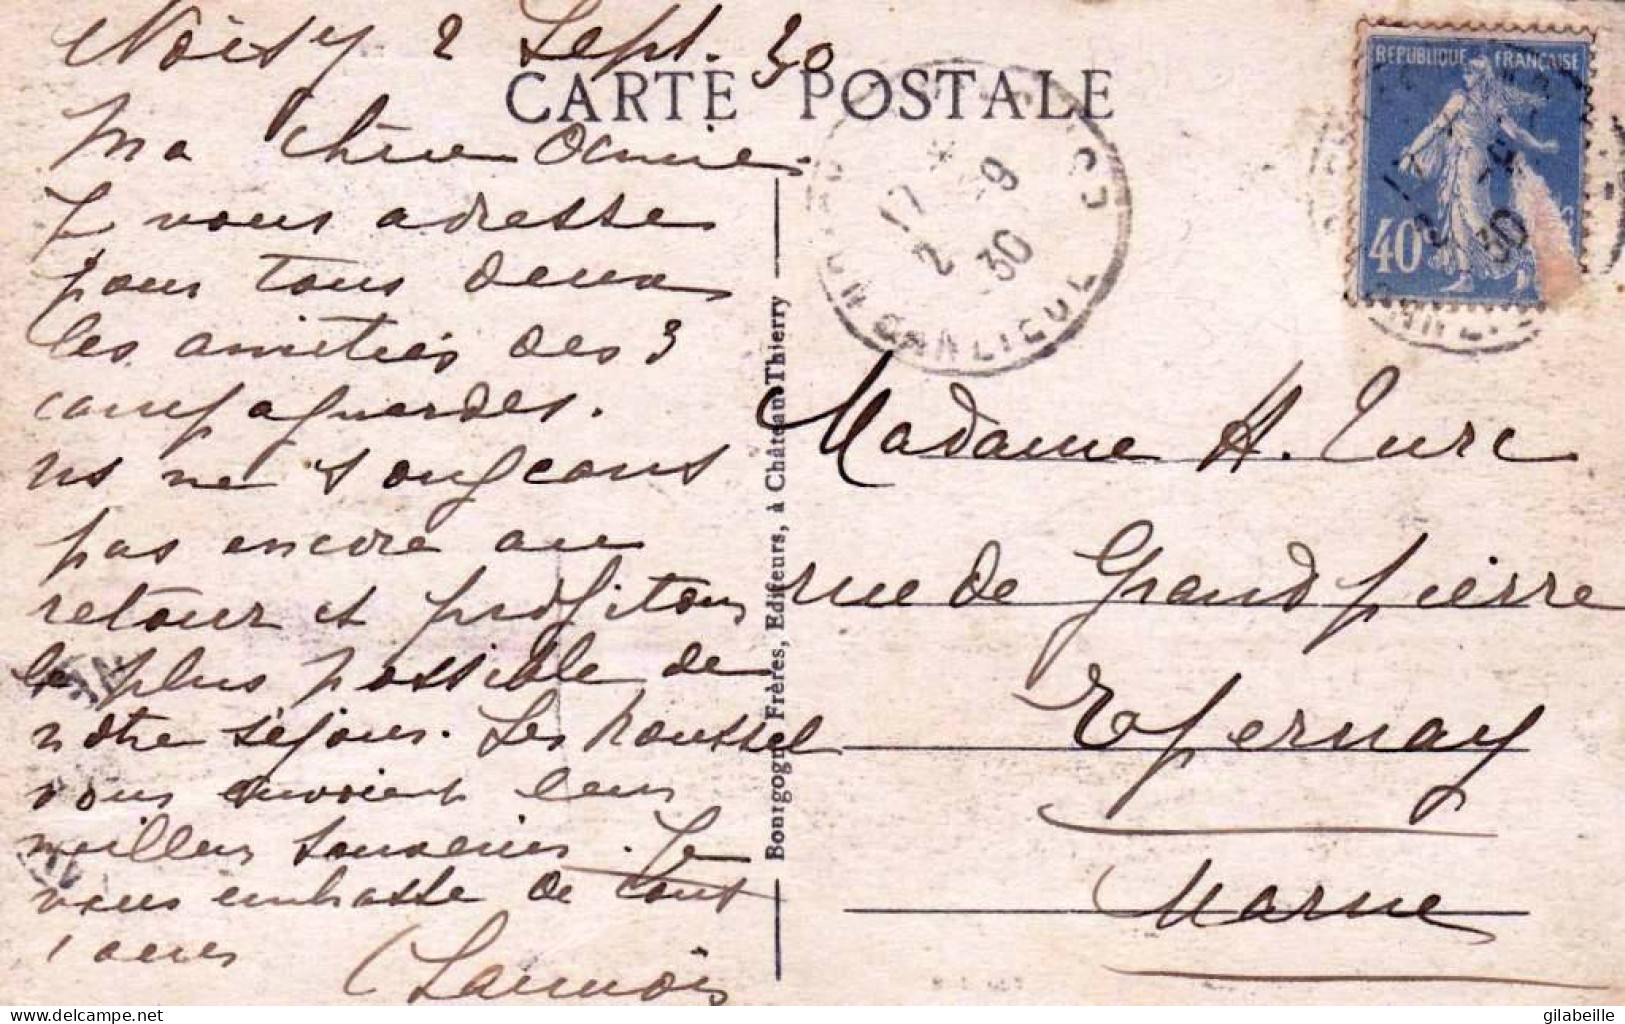 Noisy 2 Sept. 30
CARTE POSTALE
Ma chère
Je vous adresse
pour tous deux
les amitiés des 3
campagnardes.
Ns ne songeons
pas encore au
retour et profitons
le plus possible de
notre séjour. Les Roussel
vous envoient leurs
meilleurs souvenirs. Je
vous embrasse de tout
cœur
REPUBLIQUE FRANÇAISE
40 c
17 * 2 -9 30
Bourgogne Frères, Editeurs, à Château-Thierry
Madame H. Turc
rue de Grandpierre
Epernay
Marne
delcampe.net
gilabeille